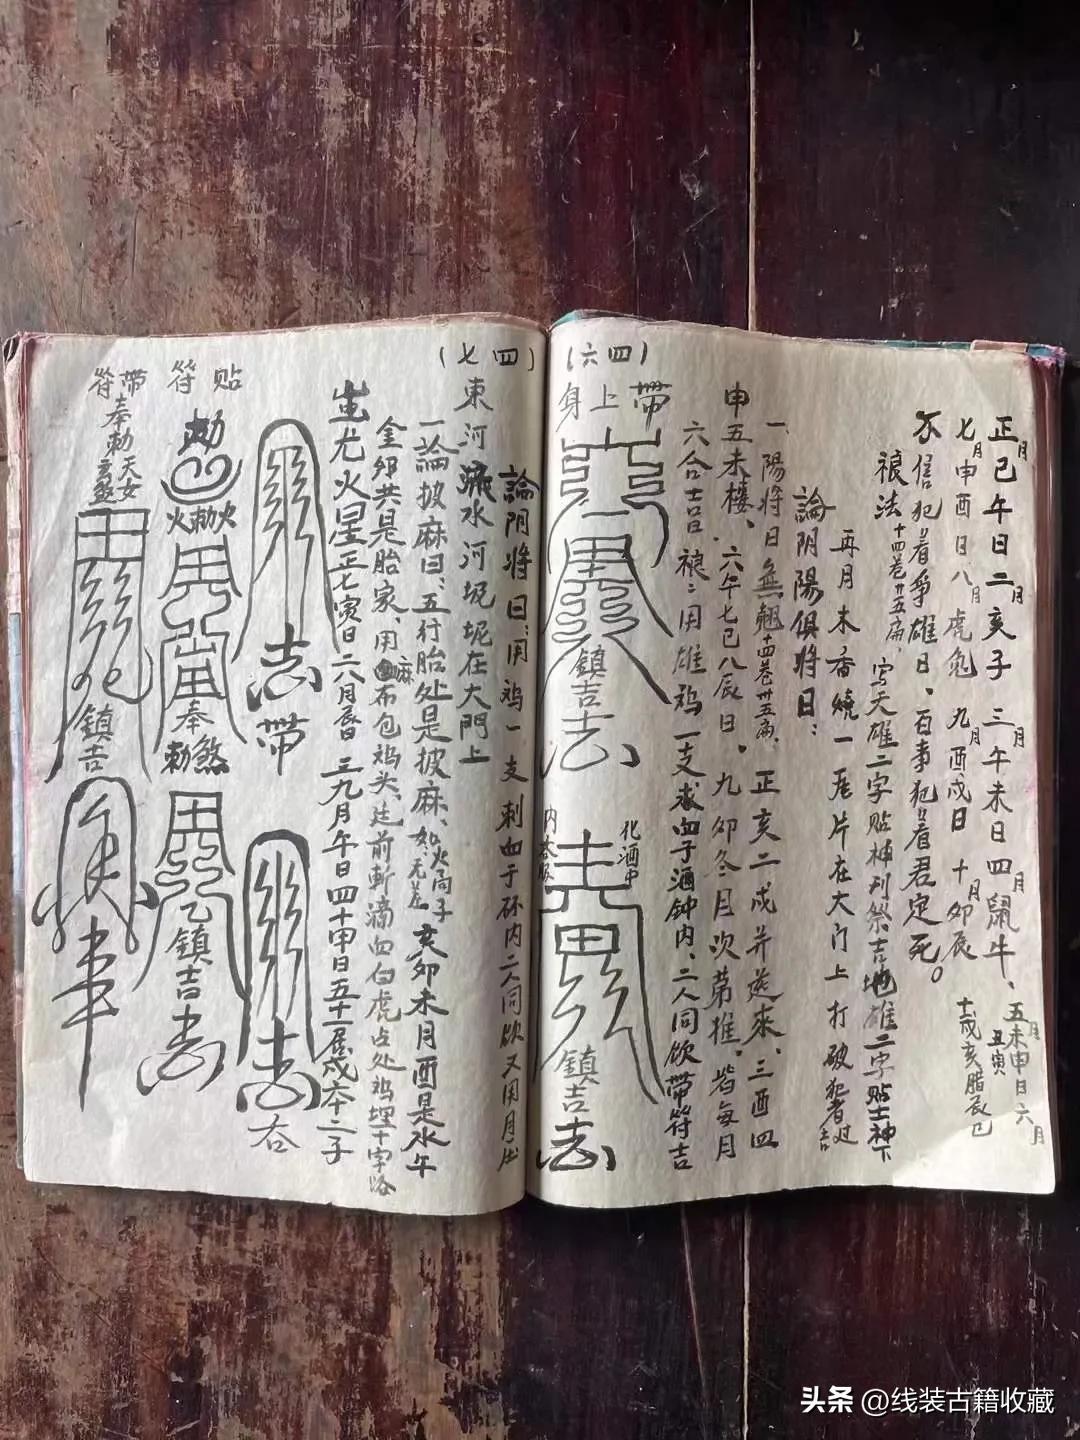 (六四)
正月巳午日二月亥子三月午未日四月鼠牛、五月未申日六月丑寅
七月申酉日八月虎兔九月酉戌日十月卯辰十二戌亥腊辰巳
不信犯着爭雄日、百事犯着君定死。
禳法十四卷廿五扁、写天雄二字贴神列祭吉地雄二字贴土神下
再月未香燒一瓦片在大门上打破犯者过吉
論阴陽俱将日：
一、陽将日無翹十四卷廿五扁、正亥二戌并逆來、三酉四
申五未樓、六午七巳八辰日、九卯冬月次第推、皆每月
六合吉日禳：用雄鸡一支求血于酒钟内、二人同饮带符吉
帶上身
鎮吉
化酒中
内吞服
鎮吉
(七四)
論阴将日：用鸡一支刺血于杯内二人同饮又用月出
東河流水河坭坭在大門上
一論披麻日：五行胎处是披麻、如火局子无差亥卯未月酉是水午
金卯共是胎家、用麻布包鸡头、廷前斬滴血白虎占处鸡埋十字路
蚩尤火星正七寅日二六月辰日三九月午日四十申日五十一辰戌本二子
帶
吞
贴符
勅
火勅火
奉勅煞
鎮吉
帶符
奉勅天女
鎮吉
头条 @线装古籍收藏